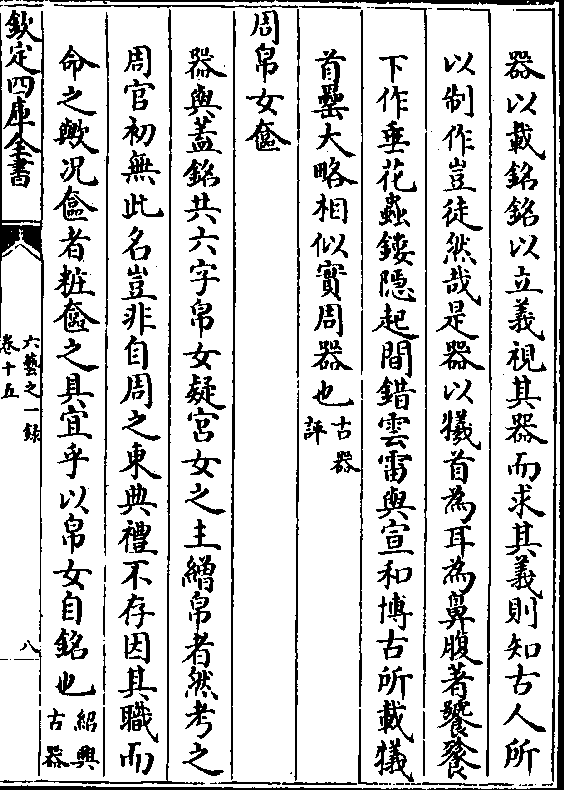 器以載銘銘以立義視其器而求其義則知古人所
以制作豈徒然哉是器以犧首為耳為鼻腹著饕餮
下作垂花蟲鏤隠起間錯雲雷與宣和博古所載犧
首罍大略相似實周器也古器
評
周帛女奩
器與蓋銘共六字帛女疑宮女之主繒帛者然考之
周官初無此名豈非自周之東典禮不存因其職而
命之歟况奩者粧奩之具宜乎以帛女自銘也紹興
古器
欽定四庫全書
六藝之一録
卷十五
八